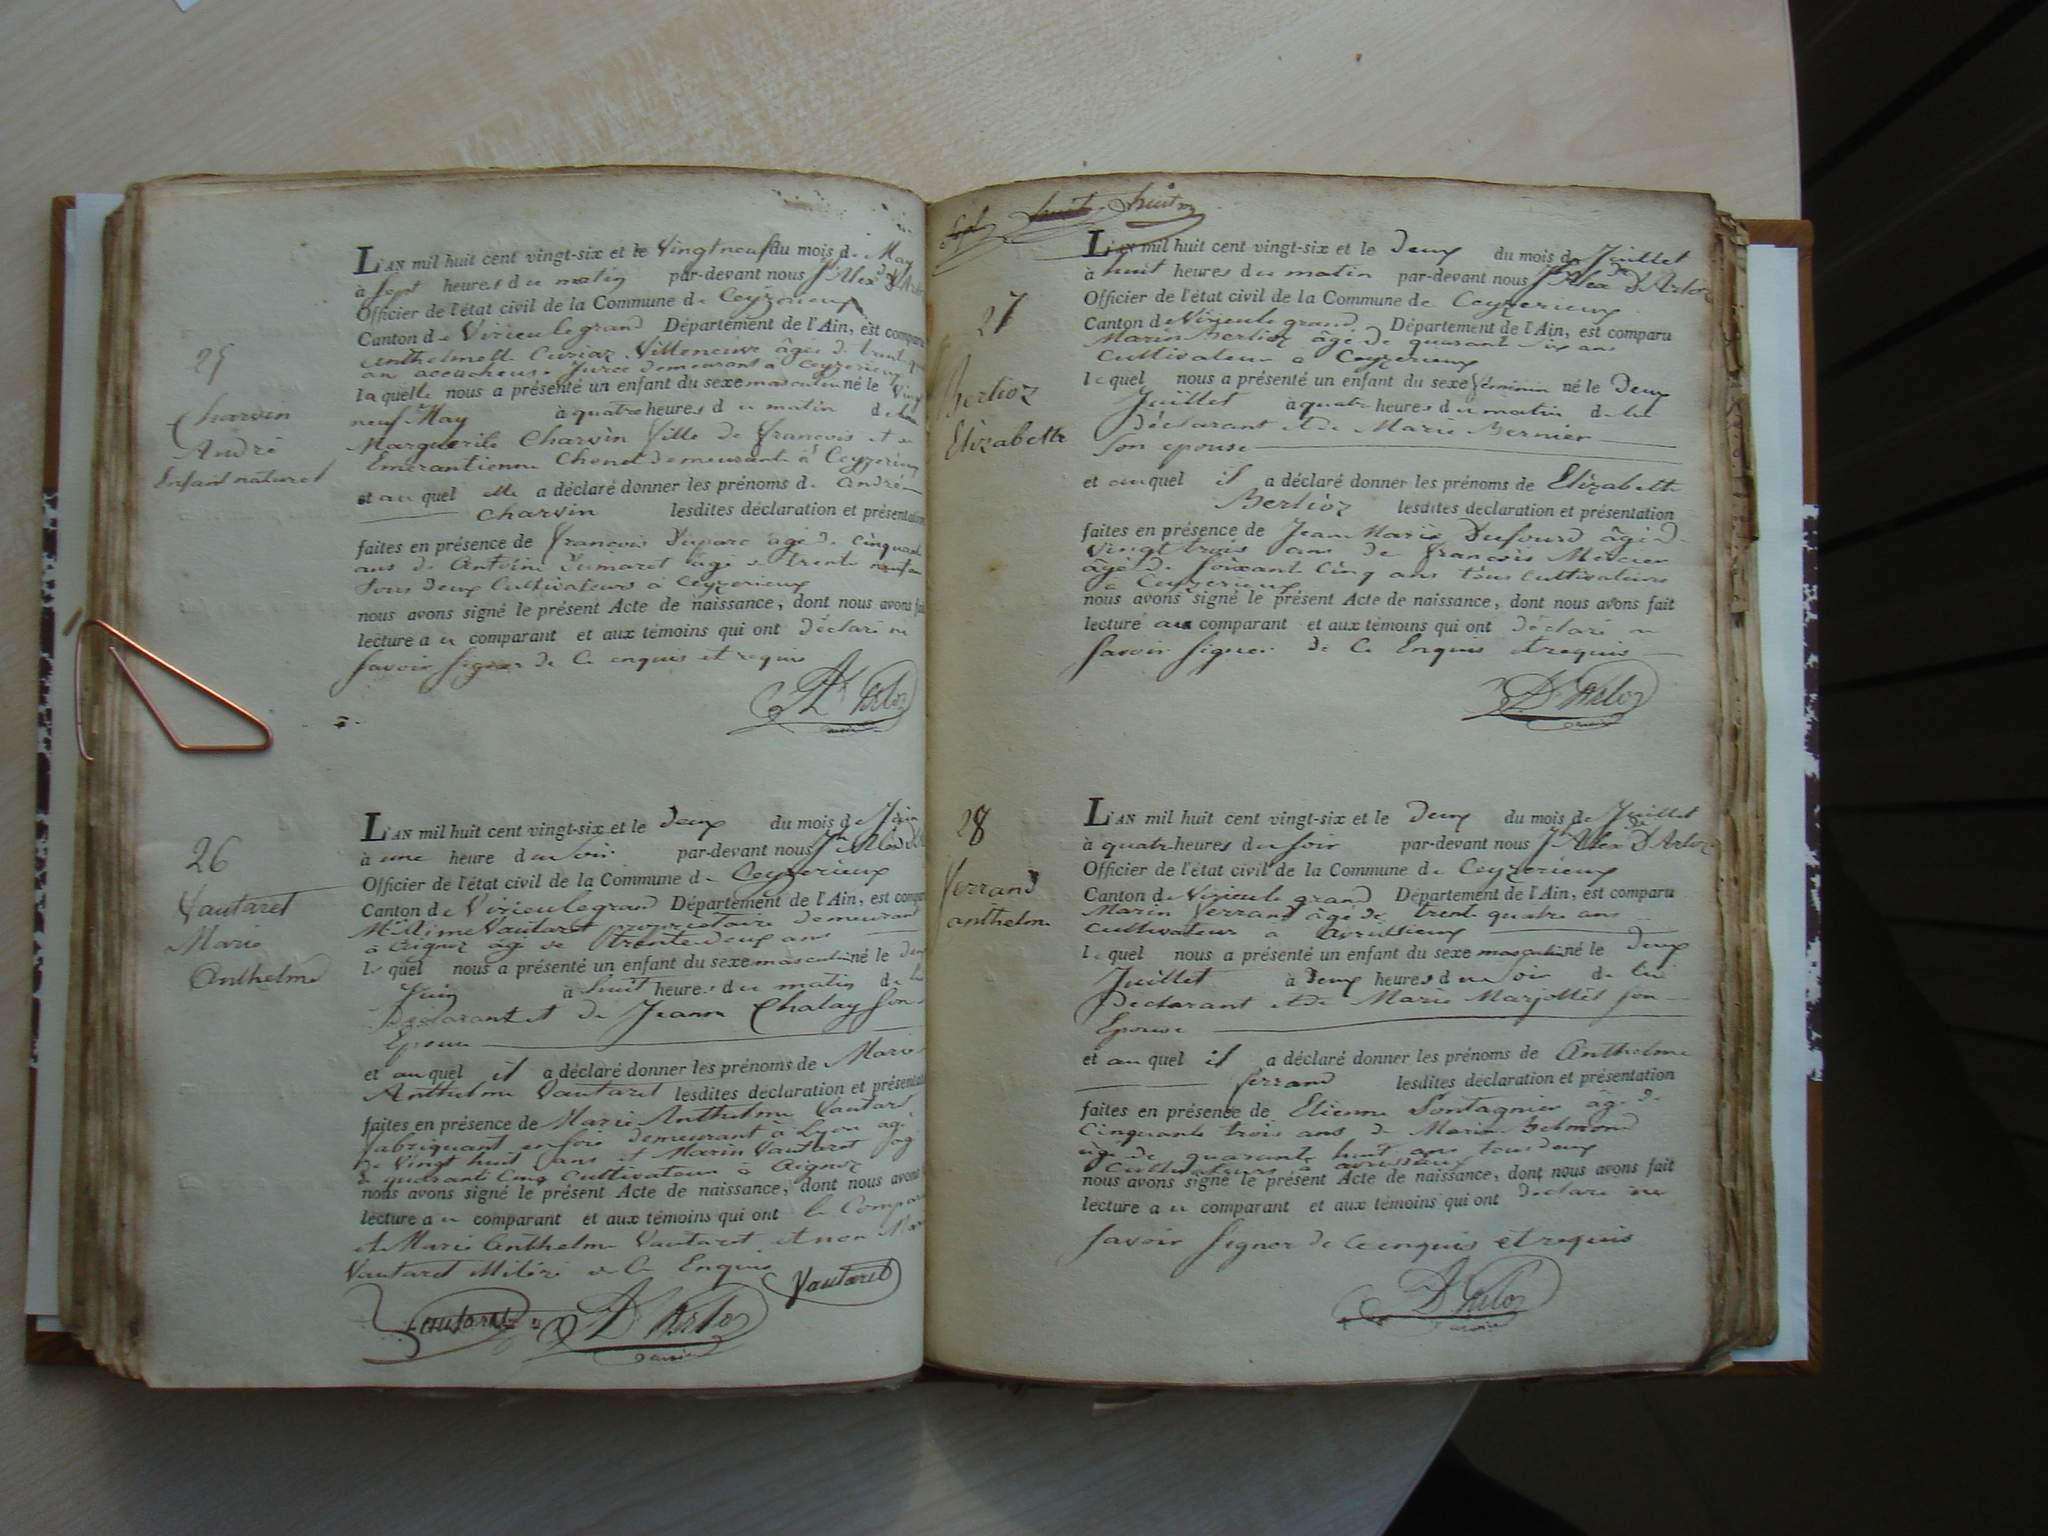 25
Charvin
André
Enfant naturel
L'AN mil huit cent vingt-six et le Vingt neuf du mois de May
à sept heures du matin par-devant nous Jn Alexdre
Officier de l'état civil de la Commune de Ceyzerieux
Canton de Virieulegrand Département de l'Ain, est comparu
anthelmette Curiaz Villeneuve âgée de
accoucheuse Jurée demeurant à Ceyzerieux
laquelle nous a présenté un enfant du sexe masculin né le Vingt
neuf May à quatre heures du matin de
Marguerite Charvin fille de françois et
Emerantienne Chenel demeurant à Ceyzerieux
et au quel elle a déclaré donner les prénoms de andré
Charvin lesdites déclaration et présentation
faites en présence de françois Duparc âgé de cinquante
ans de Antoine Dumaret âgé de trente neuf ans
tous deux Cultivateurs à Ceyzerieux
nous avons signé le présent Acte de naissance, dont nous avons fait
lecture au comparant et aux témoins qui ont Déclaré ne
savoir signer de Ce enquis et requis
26
Vautaret
Marie
Anthelme
L'AN mil huit cent vingt-six et le deux du mois de Juin
à une heure du soir par-devant nous Jn
Officier de l'état civil de la Commune de Ceyzerieux
Canton de Virieulegrand Département de l'Ain, est comparu
Mr Aimé Vautaret propriétaire demeurant
à Aignoz âgé de trente deux ans
lequel nous a présenté un enfant du sexe masculin né le deux
Juin à huit heures du matin de lui
Déclarant et de Jeanne Chalay son
Epouse
et au quel il a déclaré donner les prénoms de Marie
Anthelme Vautaret lesdites déclaration et présentation
faites en présence de Marie Anthelme Vautaret
fabriquant en soie demeurant à Lyon âgé
de vingt huit ans et Marin Vautaret âgé
de quarante Cinq Cultivateur à Aignoz
nous avons signé le présent Acte de naissance, dont nous avons
lecture au comparant et aux témoins qui ont le Comparant
et Marie Anthelme Vautaret et non Marin
Vautaret de Ce Enquis
Vautaret
Vautaret D'Arloz
huit
27
Berlioz
Elizabette
L'AN mil huit cent vingt-six et le Deux du mois de Juillet
à huit heures du matin par-devant nous Jn Alexdre D'Arloz
Officier de l'état civil de la Commune de Ceyzerieux
Canton de Virieulegrand Département de l'Ain, est comparu
Marin Berlioz âgé de quarante six ans
Cultivateur à Ceyzerieux
lequel nous a présenté un enfant du sexe féminin né le Deux
Juillet à quatre heures du matin de lui
Déclarant et de Marie Bernier
Son epouse
et au quel il a déclaré donner les prénoms de Elizabette
Berlioz lesdites declaration et présentation
faites en présence de Jean Marie Dufourd âgé de
vingt trois ans de françois Mercier
âgé de soixante Cinq ans tous cultivateurs
à Ceyzerieux
nous avons signé le présent Acte de naissance, dont nous avons fait
lecture au comparant et aux témoins qui ont Déclaré ne
savoir signer de Ce Enquis et requis
D'Arloz
28
ferrand
anthelme
L'AN mil huit cent vingt-six et le Deux du mois de Juillet
à quatre heures du soir par-devant nous Jn Alexdre D'Arloz
Officier de l'état civil de la Commune de Ceyzerieux
Canton de Virieule grand Département de l'Ain, est comparu
Marin ferrand âgé de trente quatre ans
Cultivateur à avrissieux
lequel nous a présenté un enfant du sexe masculin né le Deux
Juillet à Deux heures du soir de lui
Déclarant et de Marie Marjollet son
Epouse
et au quel il a déclaré donner les prénoms de Anthelme
ferrand lesdites déclaration et présentation
faites en présence de Etienne Pontagnier âgé de
Cinquante trois ans de Marin Belmond
âgé de quarante huit ans tous deux
Cultivateurs à avrissieux
nous avons signé le présent Acte de naissance, dont nous avons fait
lecture au comparant et aux témoins qui ont déclaré ne
savoir signer de Ce enquis et requis
D'Arloz